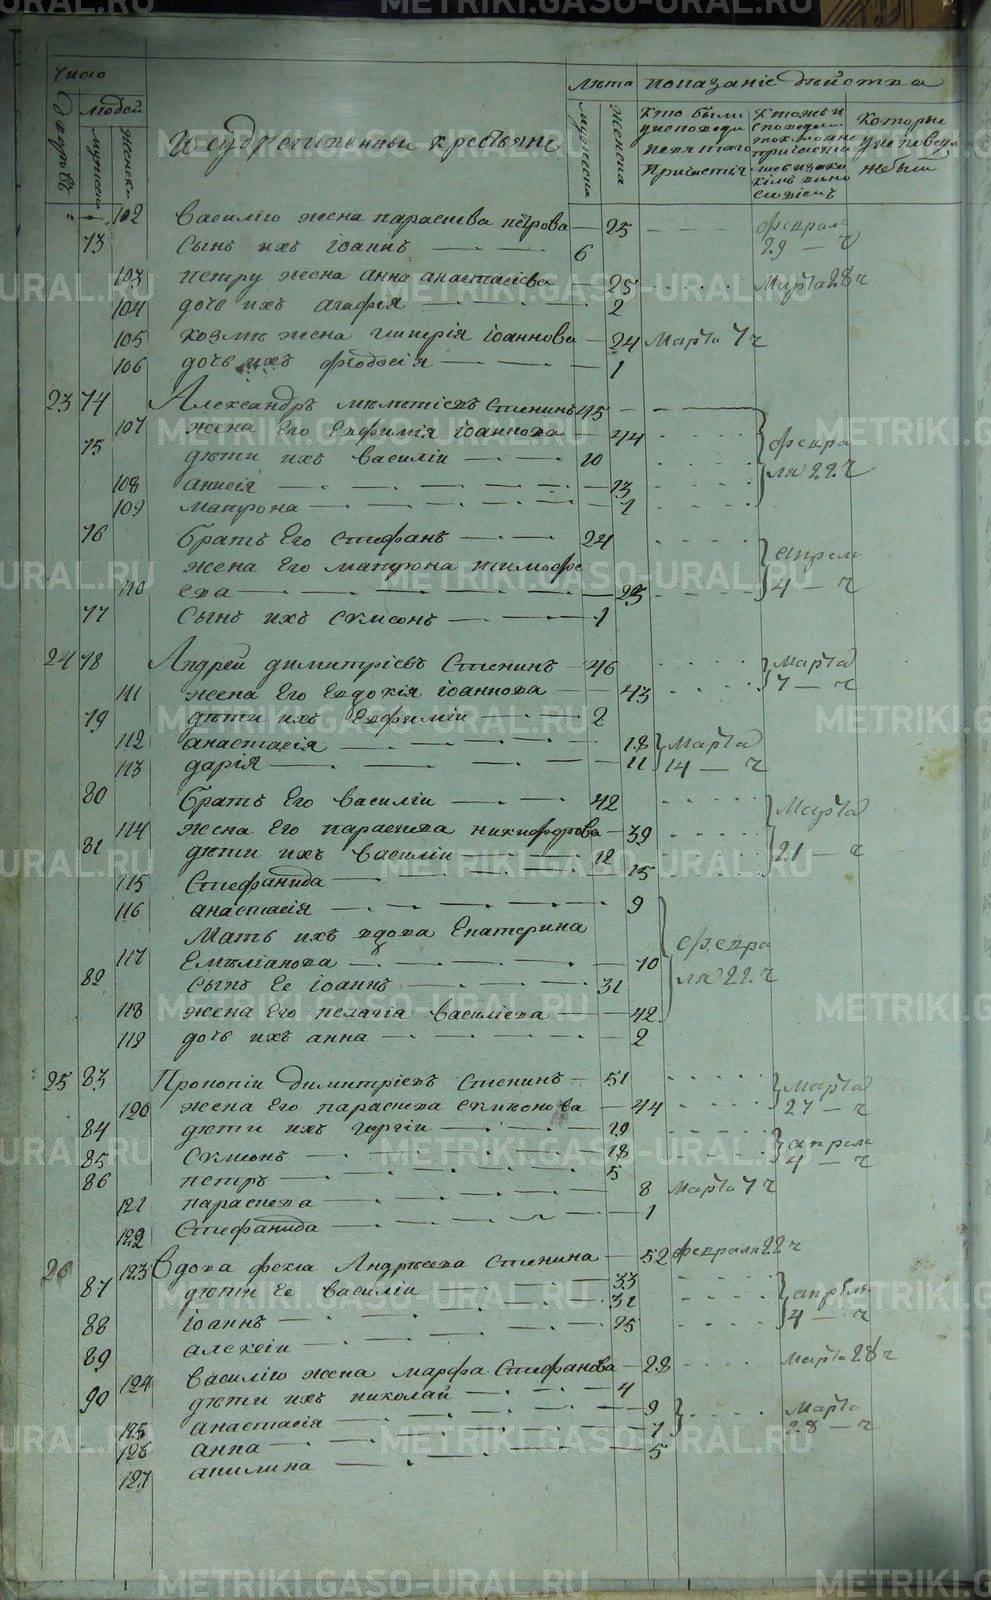 METRIKI.GASO-URAL.RU
Число
дворовъ
людей
мужеска
женска
Государственныи крестьяне
лѣта
мужеска
женска
показаніе дѣйства
102 Василію жена параскева петрова — 25 февраля 29 — ч
73 Сынъ ихъ іоаннъ — 6
103 петру жена анна анастасіева — 25 Марта 28 ч
104 дочь ихъ агафія — 2
105 козмѣ жена іоаннова — 24 Марта 7 ч
106 дочь ихъ феодосія — 1
23 74 Александръ Стенинъ 45
107 жена Его Евфимія іоаннова — 44 февра
75 дѣти ихъ василіи — 10 ля 22. ч
108 анисія — 13
109 матрона — 7
76 братъ Его стефанъ — 24 апреля
жена Его матрона тимофе
110 ева — 25 4 — ч
77 Сынъ ихъ симеонъ — 1
24 78 Андрей димитріевъ Стенинъ — 46 Марта
111 жена Его Евдокія іоаннова — 43 7 — ч
79 дѣти ихъ Евфиміи — 2
112 анастасія — 18 Марта
113 дарія — 11 14 — ч
80 братъ Его василіи — 42 Марта
114 жена Его параскева никифорова — 39
81 дѣти ихъ василіи — 12 21 — ч
115 Стефанида — 15
116 анастасія — 9
Мать ихъ вдова Екатерина февра
117 Емѣліанова — 70
82 сынъ Ее іоаннъ — 31 ля 22. ч
118 жена Его пелагіа василіева — 42
119 дочь ихъ анна — 2
25 83 Прокопіи димитріевъ Стенинъ — 51 Марта
120 жена Его параскева — 44 27 — ч
84 дѣти ихъ — 19 апреля
85 симеонъ — 18 4 — ч
86 петръ — 5
121 параскева — 8 Марта 7 ч
122 Стефанида — 1
26 123 Вдова фекла Андрѣева Стенина — 52 февраля 22 ч
87 дѣти Ее василіи — 33 апреля
88 іоаннъ — 31 4 — ч
89 алексіи — 25
124 василію жена марфа Стефанова — 28 Марта 28 ч
90 дѣти ихъ николай — 4
125 анастасія — 9 Марта
126 анна — 7 28 ч
127 акилина — 5